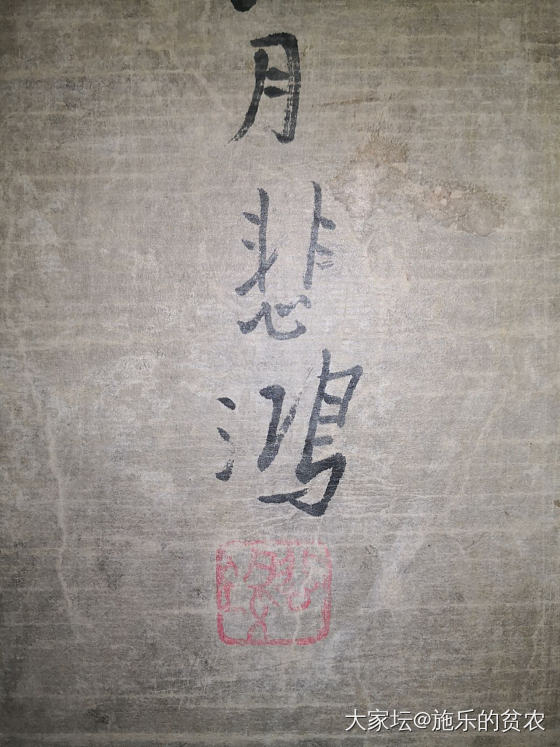 月
悲
鸿
大家坛@施乐的贫农